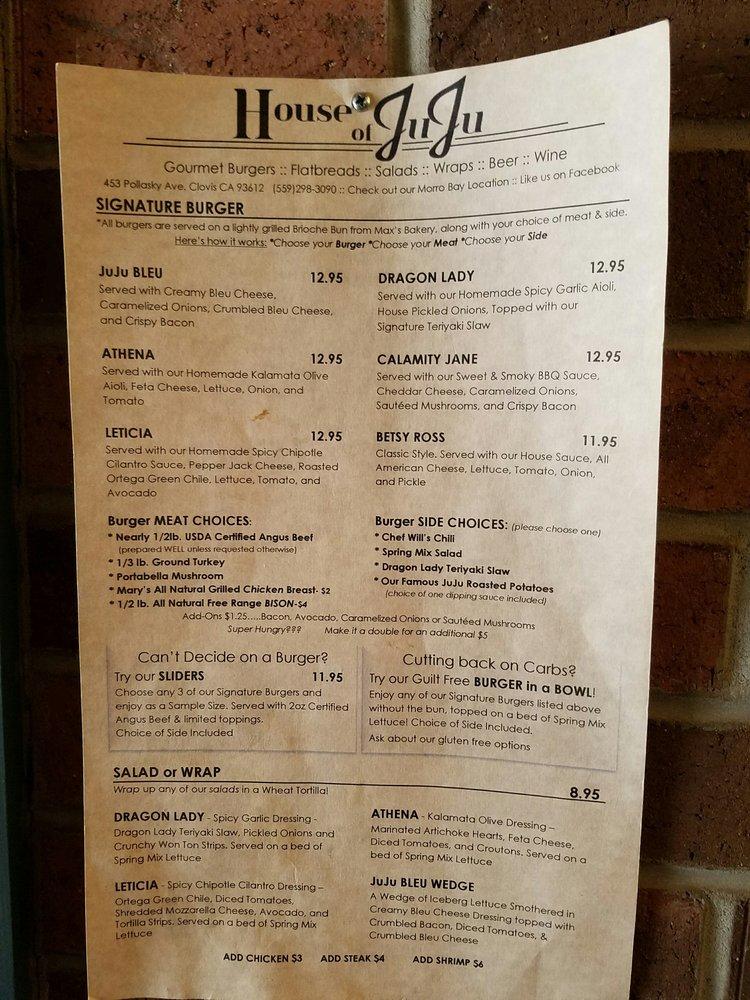 House of JuJu
Gourmet Burgers :: Flatbreads :: Salads :: Wraps :: Beer :: Wine
453 Pollasky Ave. Clovis CA 93612 (559)298-3090 :: Check out our Morro Bay Location :: Like us on Facebook
SIGNATURE BURGER
*All burgers are served on a lightly grilled Brioche Bun from Max's Bakery, along with your choice of meat & side.
Here's how it works: *Choose your Burger *Choose your Meat *Choose your Side
JuJu BLEU 12.95
Served with Creamy Bleu Cheese,
Caramelized Onions, Crumbled Bleu Cheese,
and Crispy Bacon
DRAGON LADY 12.95
Served with our Homemade Spicy Garlic Aioli,
House Pickled Onions, Topped with our
Signature Teriyaki Slaw
ATHENA 12.95
Served with our Homemade Kalamata Olive
Aioli, Feta Cheese, Lettuce, Onion, and
Tomato
CALAMITY JANE 12.95
Served with our Sweet & Smoky BBQ Sauce,
Cheddar Cheese, Caramelized Onions,
Sautéed Mushrooms, and Crispy Bacon
LETICIA 12.95
Served with our Homemade Spicy Chipotle
Cilantro Sauce, Pepper Jack Cheese, Roasted
Ortega Green Chile, Lettuce, Tomato, and
Avocado
BETSY ROSS 11.95
Classic Style. Served with our House Sauce, All
American Cheese, Lettuce, Tomato, Onion,
and Pickle
Burger MEAT CHOICES:
* Nearly 1/2lb. USDA Certified Angus Beef
(prepared WELL unless requested otherwise)
* 1/3 lb. Ground Turkey
* Portabella Mushroom
* Mary's All Natural Grilled Chicken Breast- $2
* 1/2 lb. All Natural Free Range BISON-$4
Burger SIDE CHOICES: (please choose one)
* Chef Will's Chili
* Spring Mix Salad
* Dragon Lady Teriyaki Slaw
* Our Famous JuJu Roasted Potatoes
(choice of one dipping sauce included)
Add-Ons $1.25.....Bacon, Avocado, Caramelized Onions or Sautéed Mushrooms
Super Hungry??? Make it a double for an additional $5
Can't Decide on a Burger?
Try our SLIDERS 11.95
Choose any 3 of our Signature Burgers and
enjoy as a Sample Size. Served with 2oz Certified
Angus Beef & limited toppings.
Choice of Side Included
Cutting back on Carbs?
Try our Guilt Free BURGER in a BOWL!
Enjoy any of our Signature Burgers listed above
without the bun, topped on a bed of Spring Mix
Lettuce! Choice of Side Included.
Ask about our gluten free options
SALAD or WRAP
Wrap up any of our salads in a Wheat Tortilla! 8.95
DRAGON LADY - Spicy Garlic Dressing -
Dragon Lady Teriyaki Slaw, Pickled Onions and
Crunchy Won Ton Strips. Served on a bed of
Spring Mix Lettuce
ATHENA - Kalamata Olive Dressing –
Marinated Artichoke Hearts, Feta Cheese,
Diced Tomatoes, and Croutons. Served on a
bed of Spring Mix Lettuce
LETICIA - Spicy Chipotle Cilantro Dressing –
Ortega Green Chile, Diced Tomatoes,
Shredded Mozzarella Cheese, Avocado, and
Tortilla Strips. Served on a bed of Spring Mix
Lettuce
JuJu BLEU WEDGE
A Wedge of Iceberg Lettuce Smothered in
Creamy Bleu Cheese Dressing topped with
Crumbled Bacon, Diced Tomatoes, &
Crumbled Bleu Cheese
ADD CHICKEN $3 ADD STEAK $4 ADD SHRIMP $6